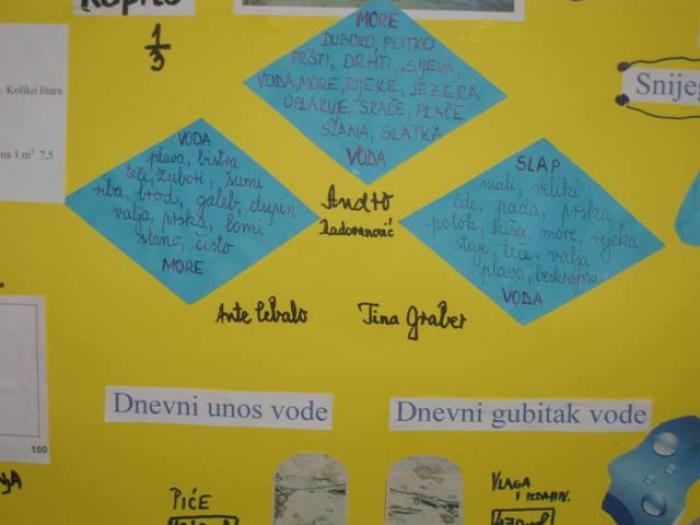 1
3
Koliko litara
na 1 m³ 7,5
MORE
DUBOKO, PLITKO
PRŠTI, DRHTI, SIJEVA,
VODA, MORE, RIJEKE, JEZERA
OPLAKUJE, SKAČE, PLAČE
SLANA, SLATKA
VODA
Snijeg
VODA
plava, bistra
teče, žubori, šumi
riba, brod, galeb, dupin
valja, prska, lomi
slano, čisto
MORE
Andro
Radovanović
SLAP
mali, veliki
ide, pada, prska
potok, kiša, more, rijeka
staje, teče, valja
plava, beskrajna
VODA
Ante Čebalo
Tina Graber
Dnevni unos vode
Dnevni gubitak vode
150
PIĆE
VLAGA